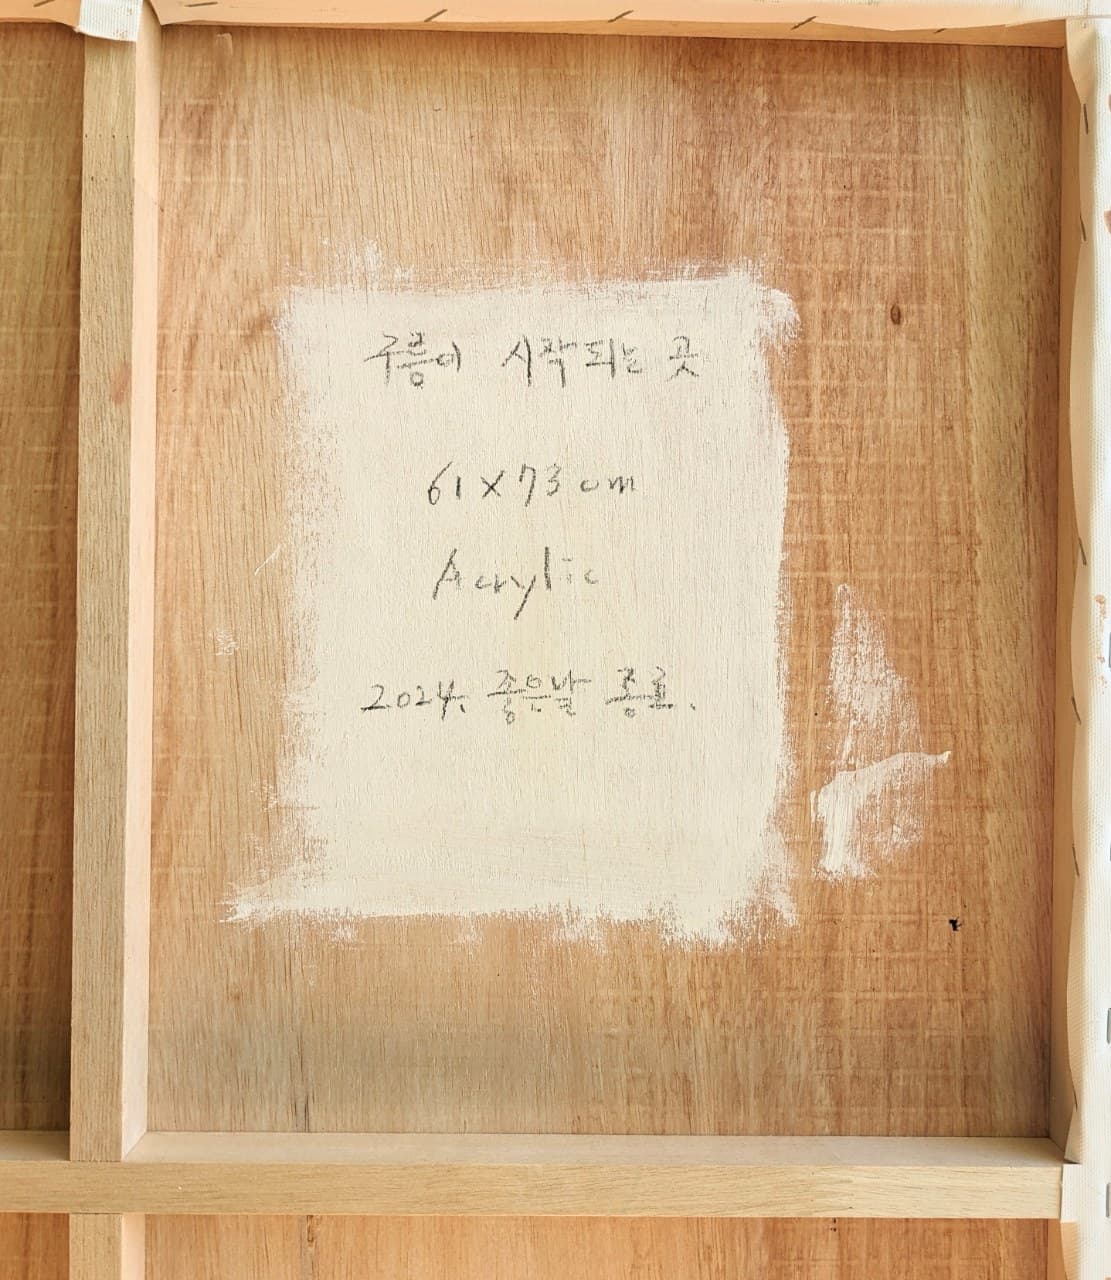 구릉이 시작되는 곳
61×73cm
Acrylic
2024. 좋은날 종료.